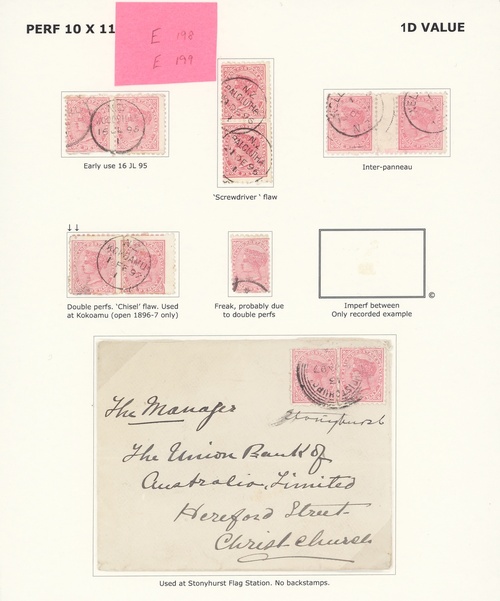 PERF 10 X 11
1D VALUE
E 198
E 199
Early use 16 JL 95
'Screwdriver ' flaw
Inter-panneau
↓↓
Double perfs. 'Chisel' flaw. Used
at Kokoamu (open 1896-7 only)
Freak, probably due
to double perfs
Imperf between
Only recorded example
©
The Manager
Stonyhurst
The Union Bank of
Australia, Limited
Hereford Street
Christchurch
Used at Stonyhurst Flag Station. No backstamps.